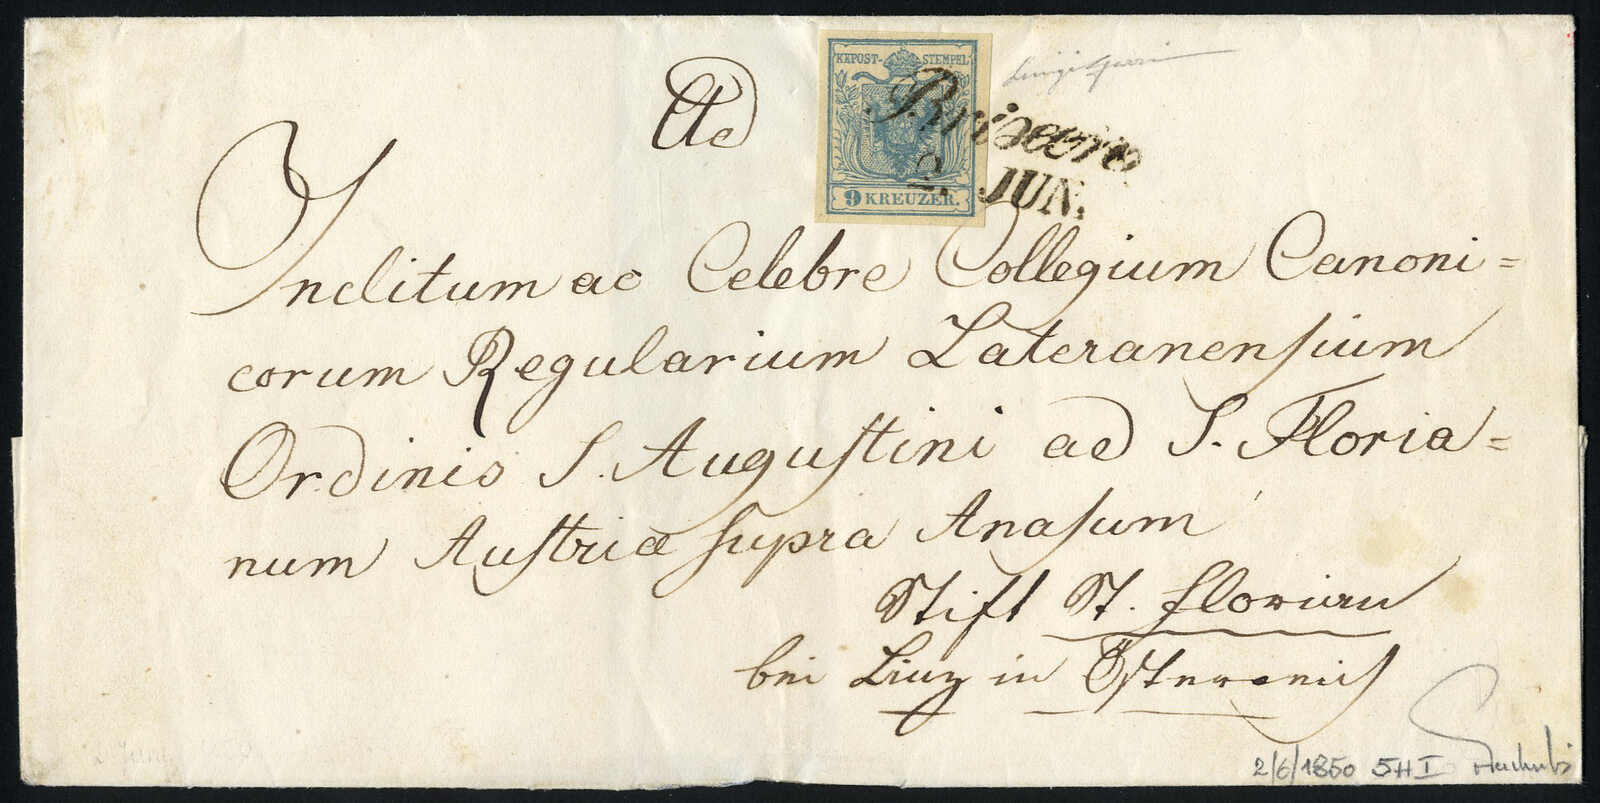 K.K.POST-STEMPEL
9 KREUZER.
Brixen
2. JUN.
Ad
Inclitum ac Celebre Collegium Canoni=
corum Regularium Lateranensium
Ordinis S. Augustini ad S. Floria=
num Austriæ supra Anasum
Stift St. Florian
bei Linz in Österreich
2/6/1850 5H I